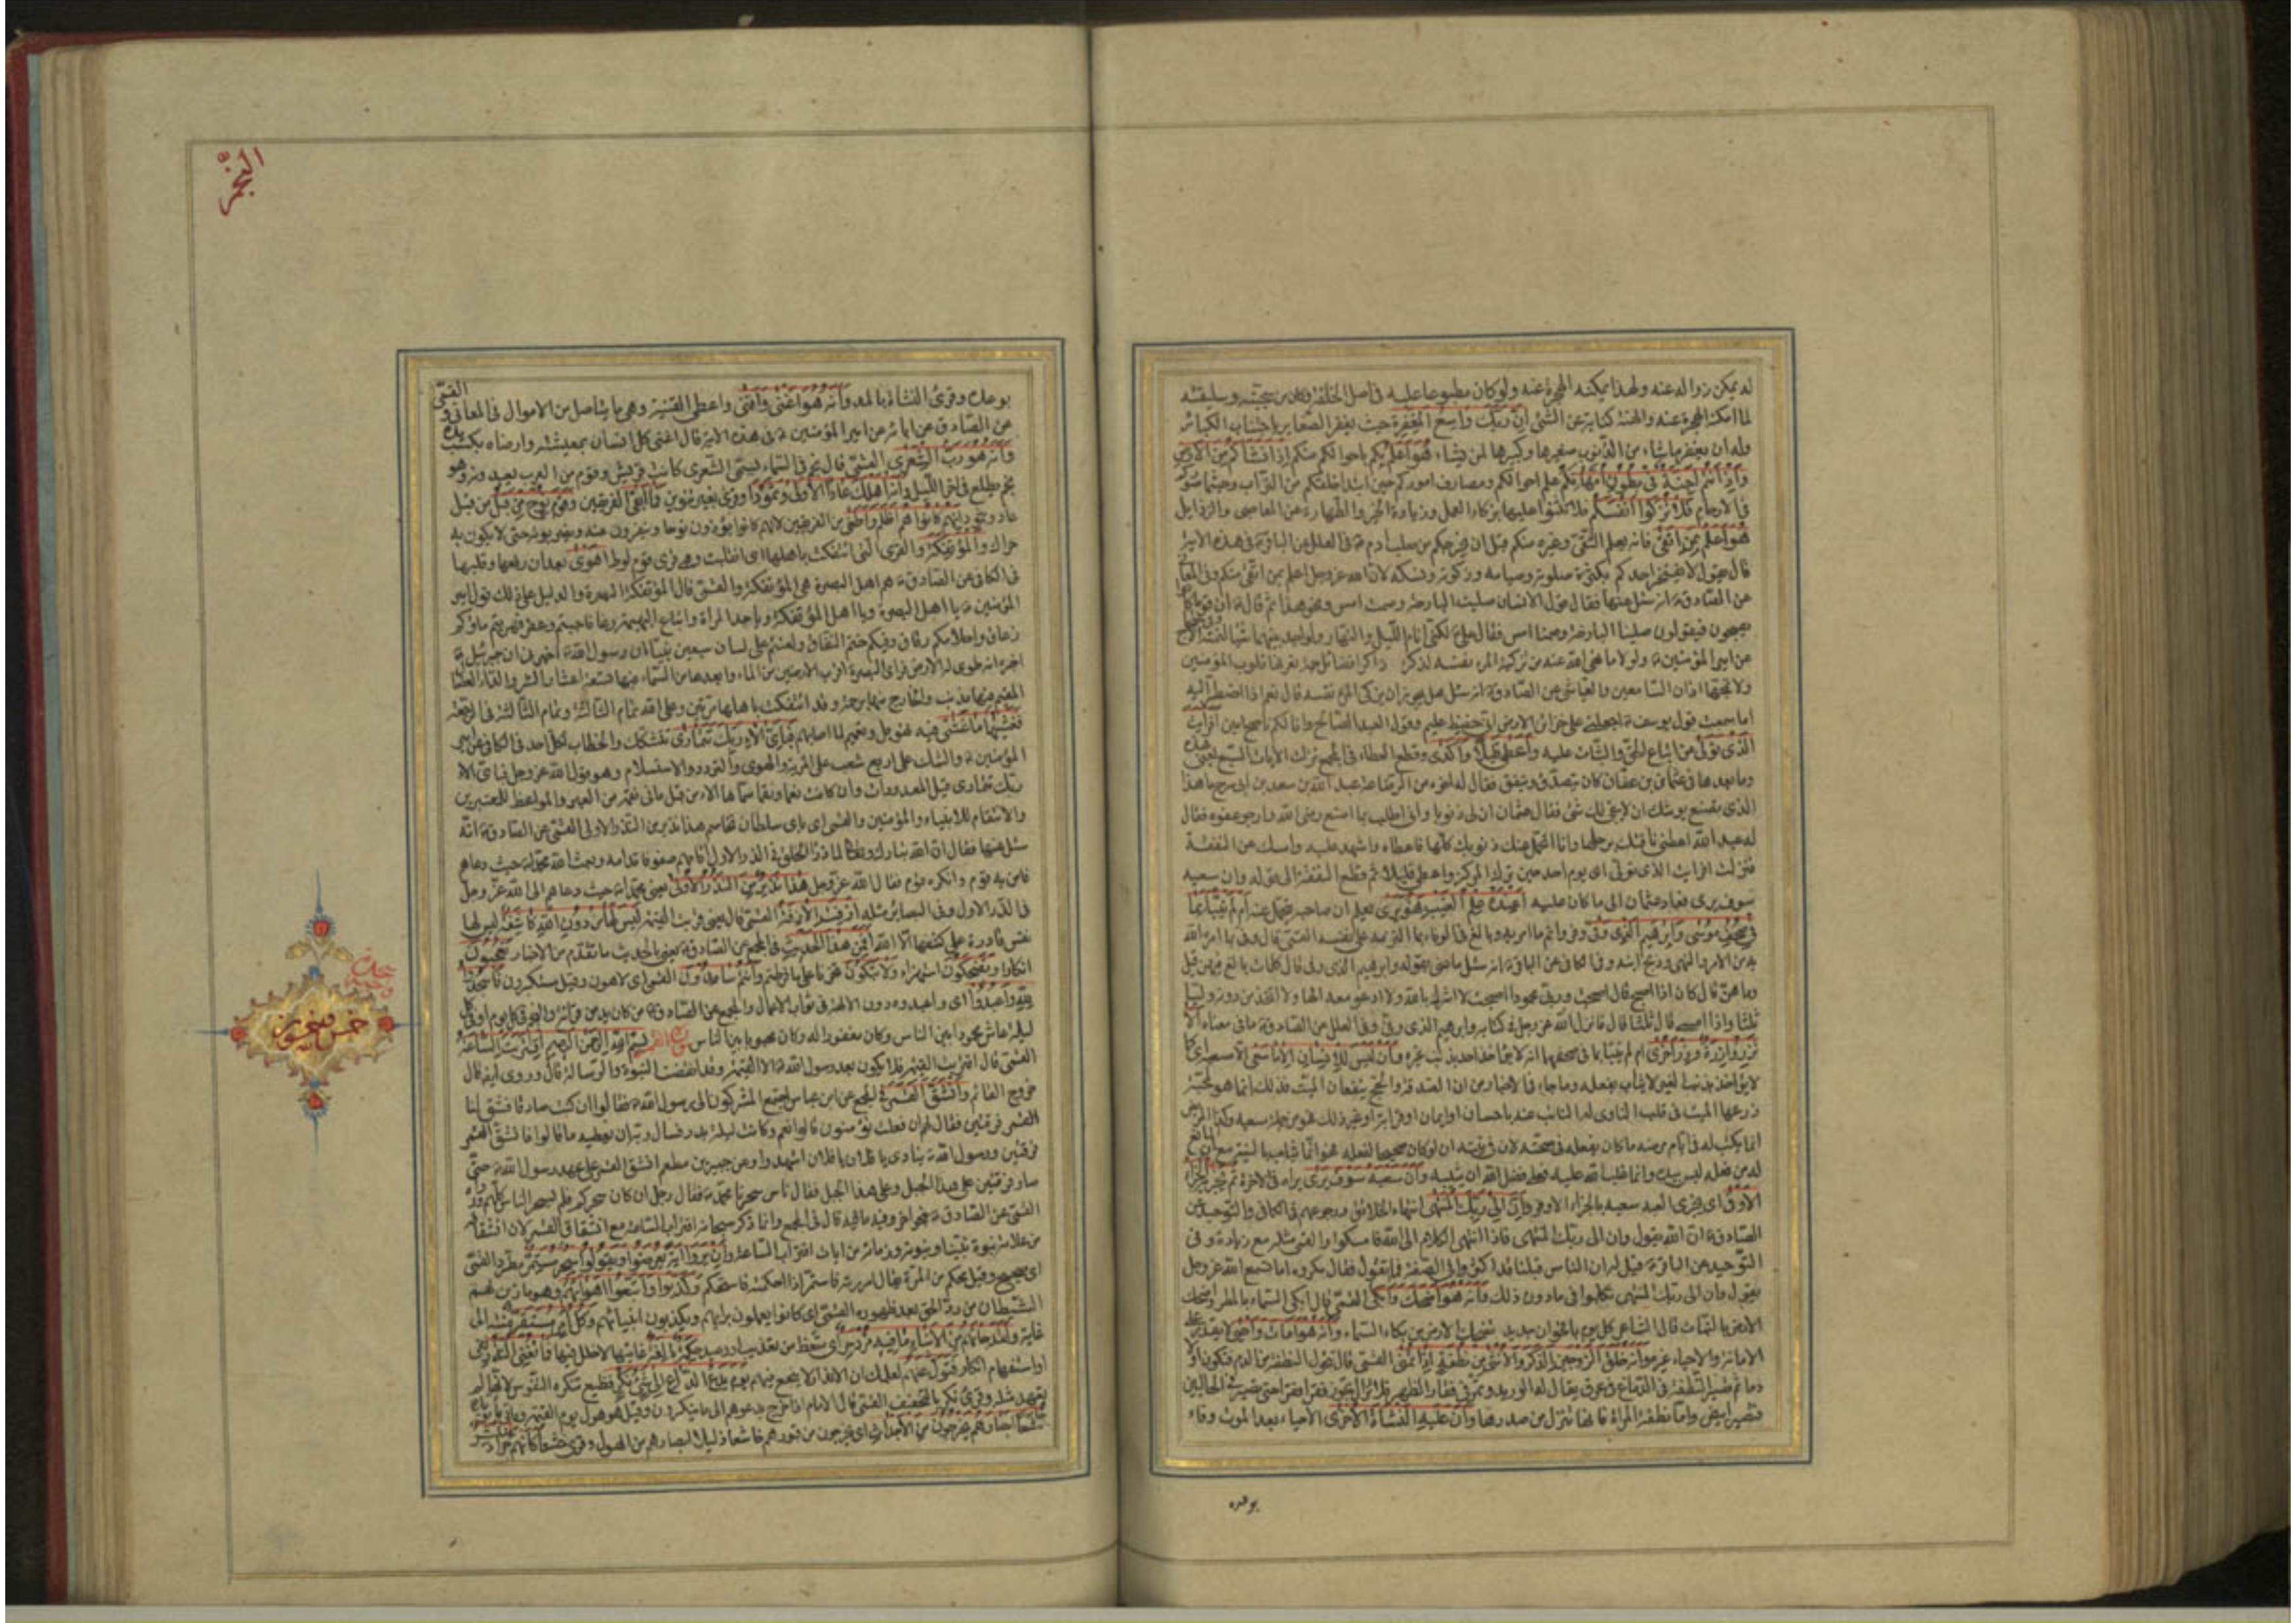 له يمكن زواله عنه ولهذا يمكنه الهجرة عنه ولو كان مطبوعا عليه في اصل الخلقة وكان من سجيته وسليقته
لما امكنه الهجرة عنه والهنة كناية عن الشئ ان ربك واسع المغفرة حيث يغفر الصغاير باجتناب الكبائر
وله ان يغفر ما يشاء من الذنوب صغيرها وكبيرها لمن يشاء هو اعلم بكم باحوالكم منكم اذ انشاكم من الارض
واذ انتم اجنة في بطون امهاتكم علم احوالكم ومصارف اموركم حين ابتدا خلقكم من التراب وحيثما صوركم
في الارحام فلا تزكوا انفسكم فلا تثنوا عليها بزكاء العمل وزيادة الخير والطهارة عن المعاصي والرذايل
هو اعلم بمن اتقى فانه يعلم التقى وغيره منكم قبل ان يخرجكم من صلب ادم ع في العلل عن الباقر ع في هذه الاية
قال يقول لا يفتخر احدكم بكثرة صلوته وصيامه وزكوته ونسكه لان الله عز وجل اعلم بمن اتقى منكم وفي المعاني
عن الصادق ع انه سئل عنها فقال قول الانسان صليت البارحة وصمت امس ونحو هذا ثم قال ع ان قوما كانوا
يصبحون فيقولون صلينا البارحة وصمنا امس فقال علي ع لكني انام الليل والنهار ولو اجد بينهما شيئا لنمته
عن امير المؤمنين ع ولولا ما نهى الله عنه من تزكية المرء نفسه لذكر ذاكر فضائل جمة تعرفها قلوب المؤمنين
ولا تمجها اذان السامعين والعياشي عن الصادق ع انه سئل هل يجوز ان يزكي المرء نفسه قال نعم اذا اضطر اليه
اما سمعت قول يوسف ع اجعلني على خزائن الارض اني حفيظ عليم وقول العبد الصالح وانا لكم ناصح امين افرايت
الذي تولى عن اتباع الحق والثبات عليه واعطى قليلا واكدى وقطع العطاء في المجمع نزلت الايات السبع يعني هذه
وما بعدها في عثمان بن عفان كان يتصدق وينفق فقال له اخوه من الرضاعة عبد الله بن سعد بن ابي سرح ما هذا
الذي تصنع يوشك ان لا يبقى لك شئ فقال عثمان ان لي ذنوبا واني اطلب بما اصنع رضى الله وارجو عفوه فقال
له عبد الله اعطني ناقتك برحلها وانا اتحمل عنك ذنوبك كلها فاعطاه واشهد عليه وامسك عن النفقة
فنزلت افرايت الذي تولى اي يوم احد حين ترك المركز واعطى قليلا ثم قطع النفقة الى قوله وان سعيه
سوف يرى فعاد عثمان الى ما كان عليه اعنده علم الغيب فهو يرى يعلم ان صاحبه يتحمل عنه ام لم ينبا بما
في صحف موسى وابراهيم الذي وفى
وما هن قال كان اذا اصبح قال اصبحت وربي محمودا اصبحت لا اشرك بالله ولا ادعو معه الها ولا اتخذ من دونه وليا
ثلثا واذا امسى قال ثلثا قال فانزل الله عز وجل في كتابه وابراهيم الذي وفى وفي العلل عن الصادق ع ما في معناه الا
تزر وازرة وزر اخرى ام لم ينبا بما في صحفهما انه لا يؤاخذ احد بذنب غيره وان ليس للانسان الا ما سعى الا سعيه اي كما
لا يؤاخذ بذنب الغير لا يثاب بفعله وما جاء في الاخبار من ان الصدقة والحج ينفعان الميت فذلك انما هو لمحبة
زرعها الميت في قلب الناوي له النائب عنه باحسان او ايمان او قرابة او غير ذلك فهو من جملة سعيه وكذا المريض
انما يكتب له في ايام مرضه ما كان يفعله في صحته لان في نيته ان لو كان صحيحا لفعله فهو انما يثاب بالنية مع ان المانع
له من فعله ليس بيده وانما غلب الله عليه فعلى فضل الله ان يثيبه وان سعيه سوف يرى يراه في الاخرة ثم يجزاه الجزاء
الاوفى اي يجزى العبد سعيه بالجزاء الاوفر وان الى ربك المنتهى انتهاء الخلائق ورجوعهم في الكافي والتوحيد عن
الصادق ع ان الله يقول وان الى ربك المنتهى فاذا انتهى الكلام الى الله فامسكوا والقمي مثله مع زيادة وفي
التوحيد عن الباقر ع قيل له ان الناس قبلنا قد اكثروا في الصفة فما تقول فقال مكروه اما تسمع الله عز وجل
يقول وان الى ربك المنتهى تكلموا فيما دون ذلك وانه هو اضحك وابكى القمي قال ابكى السماء بالمطر واضحك
الارض بالنبات قال الشاعر كل يوم باقحوان جديد تضحك الارض من بكاء السماء وانه هو امات واحيى لا يقدر على
الاماتة والاحياء غيره وانه خلق الزوجين الذكر والانثى من نطفة اذا تمنى القمي قال تتحول النطفة من الدم فتكون اولا
دما ثم تصير النطفة في الدماغ في عرق يقال له الوريد وتمر في فقار الظهر فلا تزال تجوز فقرا فقرا حتى تصير في الحالبين
فتصير ابيض واما نطفة المراة فانها تنزل من صدرها وان عليه النشاة الاخرى الاحياء بعد الموت وفاء
بوعده
النجم
بوعده وقرئ النشاءة بالمد وانه هو اغنى واقنى واعطى القنية وهي ما يتاصل من الاموال في المعاني والقمي
عن الصادق عن ابائه عن امير المؤمنين ع في هذه الاية قال اغنى كل انسان بمعيشته وارضاه بكسب يده
وانه هو رب الشعرى القمي قال نجم في السماء يسمى الشعرى كانت قريش وقوم من العرب يعبدونه وهو
نجم يطلع في اخر الليل وانه اهلك عادا الاولى وثمودا وقرئ بغير تنوين فما ابقى الفريقين وقوم نوح من قبل من قبل
عاد وثمود انهم كانوا هم اظلم واطغى من الفريقين لانهم كانوا يؤذون نوحا وينفرون عنه ويضربونه حتى لا يكون به
حراك والمؤتفكة والقرى التي ائتفكت باهلها اي انقلبت وهي قرى قوم لوط اهوى بعد ان رفعها وقلبها
في الكافي عن الصادق ع هم اهل البصرة هي المؤتفكة والقمي قال المؤتفكة البصرة والدليل على ذلك قول امير
المؤمنين ع يا اهل البصرة ويا اهل المؤتفكة ويا جند المراة واتباع البهيمة رغا فاجبتم وعقر فهربتم ماؤكم
زعاق واحلامكم رقاق وفيكم ختم النفاق ولعنتم على لسان سبعين نبيا ان رسول الله ص اخبرني ان جبرئيل ع
اخبره انه طوى له الارض فراى البصرة اقرب الارضين من الماء وابعدها من السماء فيها تسعة اعشار الشر والداء العضال
المقيم فيها مذنب والخارج منها برحمة وقد ائتفكت باهلها مرتين وعلى الله تمام الثالثة وتمام الثالثة في الرجعة
فغشيها ما غشى فيه تهويل وتعميم لما اصابهم فباي الاء ربك تتمارى تتشكك والخطاب لكل احد في الكافي عن امير
المؤمنين ع والشك على اربع شعب على المرية والهوى والتردد والاستسلام وهو قول الله عز وجل فباي الاء
ربك تتمارى قيل المعدودات وان كانت نعما ونقما سماها الاء من قبل ما في نقمه من العبر والمواعظ للمعتبرين
والانتقام للانبياء والمؤمنين والقمي اي باي سلطان تخاصم هذا نذير من النذر الاولى القمي عن الصادق ع انه
سئل عنها فقال ان الله تبارك وتعالى لما ذرا الخلق في الذر الاول اقامهم صفوفا قدامه وبعث الله محمدا ص حيث دعاهم
فامن به قوم وانكره قوم فقال الله عز وجل هذا نذير من النذر الاولى يعني محمدا ص حيث دعاهم الى الله عز وجل
في الذر الاول وفي البصائر مثله ازفت الازفة القمي قال يعني قربت القيمة ليس لها من دون الله كاشفة ليس لها
نفس قادرة على كشفها الا الله افمن هذا الحديث في المجمع عن الصادق ع يعني بالحديث ما تقدم من الاخبار تعجبون
انكارا وتضحكون استهزاء ولا تبكون تحزنا على ما فرطتم وانتم سامدون القمي اي لاهون وقيل مستكبرون فاسجدوا
لله واعبدوا اي واعبدوه دون الالهة في ثواب الاعمال والمجمع عن الصادق ع من كان يدمن قراءة والنجم في كل يوم او في كل
ليلة عاش محمودا بين الناس وكان مغفورا له وكان محبوبا بين الناس سورة القمر بسم الله الرحمن الرحيم اقتربت الساعة
القمي قال اقتربت القيمة فلا يكون بعد رسول الله ص الا القيمة وقد انقضت النبوة والرسالة قال وروي ايضا قال
خروج القائم وانشق القمر في المجمع عن ابن عباس اجتمع المشركون الى رسول الله ص فقالوا ان كنت صادقا فشق لنا
القمر فرقتين فقال لهم ان فعلت تؤمنون قالوا نعم وكانت ليلة بدر فسال ربه ان يعطيه ما قالوا فانشق القمر
فرقتين ورسول الله ص ينادي يا فلان يا فلان اشهدوا وعن جبير بن مطعم انشق القمر على عهد رسول الله ص حتى
صار فرقتين على هذا الجبل وعلى هذا الجبل فقال ناس سحرنا محمد ص فقال رجل ان كان سحركم فلم يسحر الناس كلهم
من علامة نبوة نبينا ونبوته وزمانه من ايات اقتراب الساعة وان يروا اية يعرضوا ويقولوا سحر مستمر مطرد القمي
اي صحيح وقيل محكم من المرة يقال امررته فاستمر اذا احكمته فاستحكم وكذبوا واتبعوا اهواءهم وهو ما زين لهم
الشيطان من رد الحق بعد ظهوره القمي اي كانوا يعملون برايهم ويكذبون انبيائهم وكل امر مستقر منته الى
غاية ولقد جاءهم من الانباء ما فيه مزدجر اي متعظ من تعذيب او وعيد حكمة بالغة غايتها لا خلل فيها فما تغني النذر نفي
او استفهام انكار فتول عنهم لعلمك ان الانذار لا ينجع فيهم يوم يدع الداع الى شئ نكر فظيع تنكره النفوس لانها لم
تعهد مثله وقرئ نكر بالتخفيف القمي قال الامام اذا خرج يدعوهم الى ما ينكرون وقيل هو هول يوم القيمة
خشعا ابصارهم يخرجون من الاجداث اي يخرجون من قبورهم خاشعا ذليلا ابصارهم من الهول وقرئ خشعا كانهم جراد